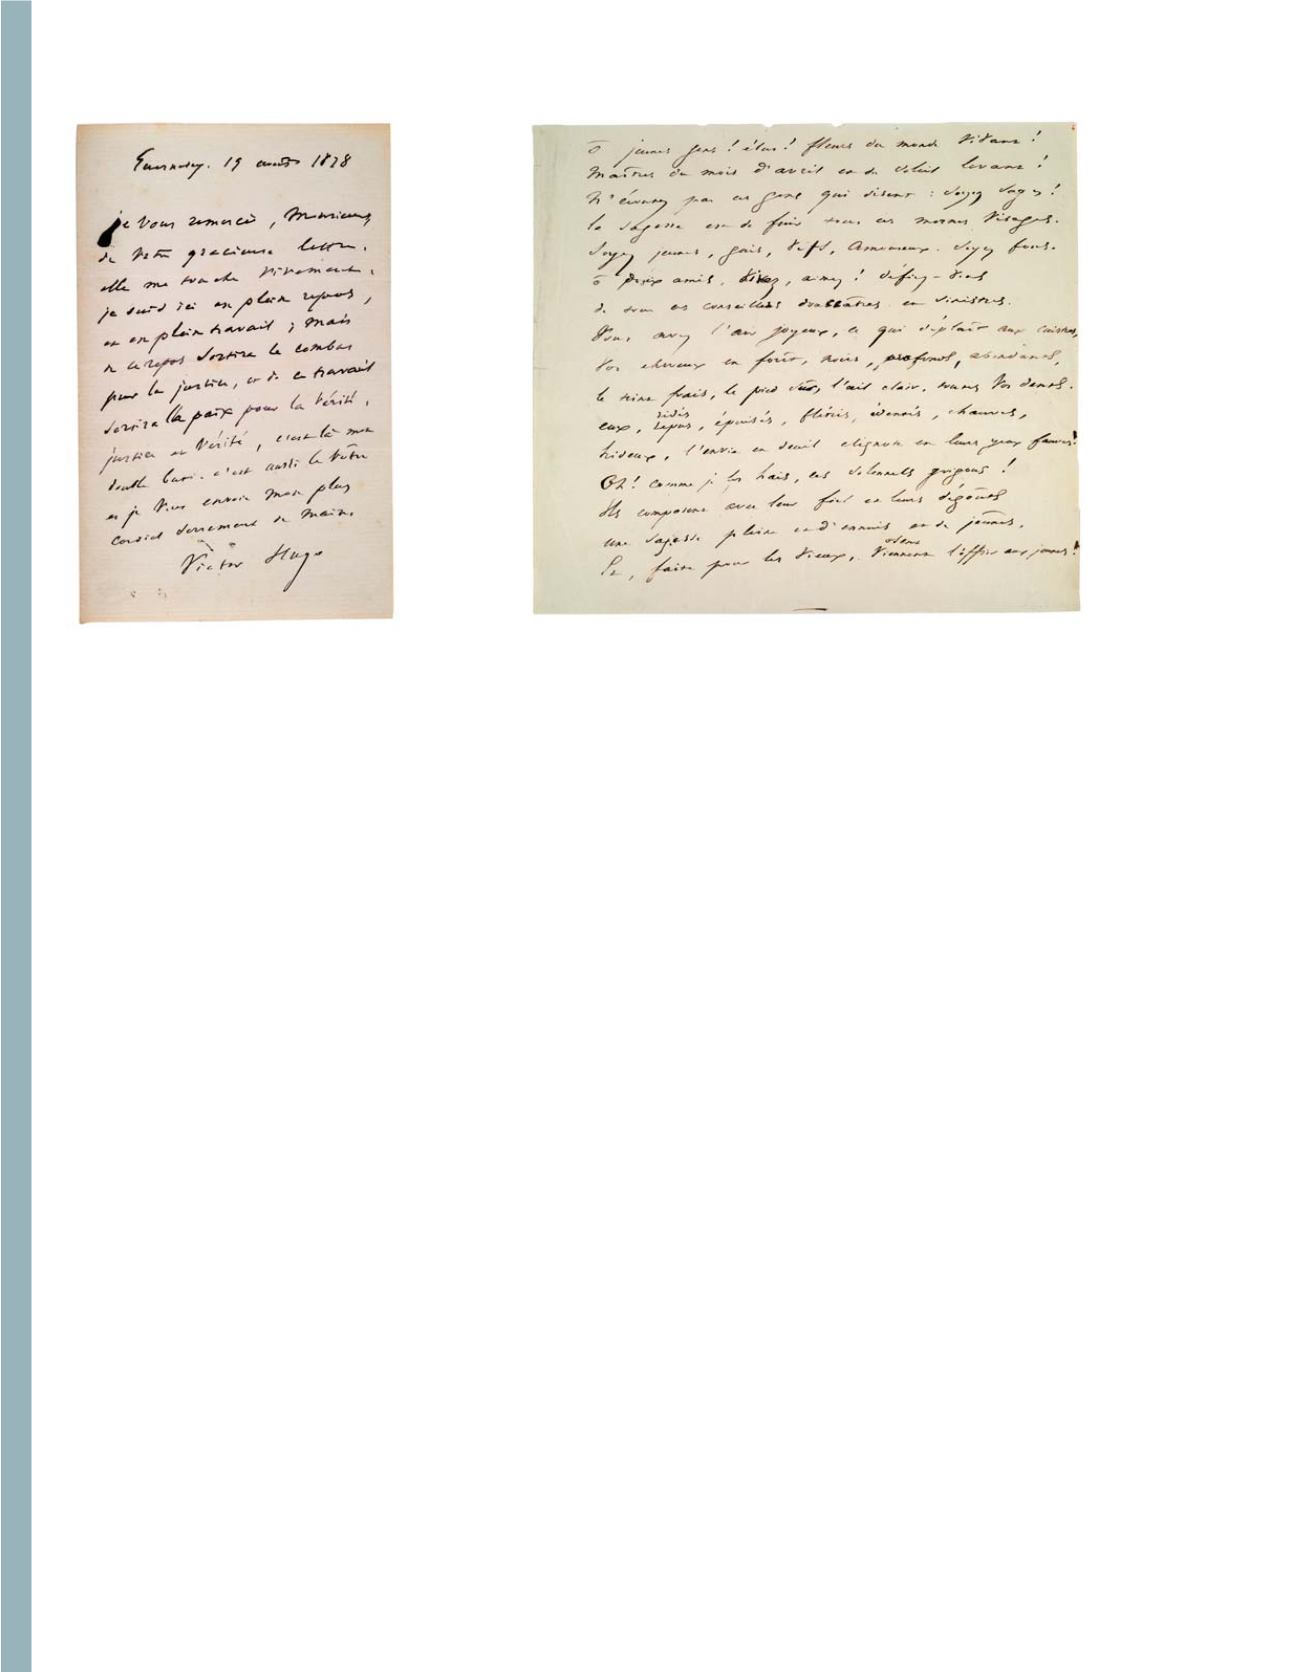 Guernesey. 19 août 1878
je vous remercie, Monsieur,
de votre gracieuse lettre.
elle me touche vivement.
je suis ici en plein repos,
et en plein travail ; mais
de ce repos sortira le combat
pour la justice, et de ce travail
sortira la paix pour la vérité.
justice et vérité, c'est là mon
double but. c'est aussi le vôtre
et je vous envoie mon plus
cordial serrement de main.
Victor Hugo
ô jeunes gens ! élus ! fleurs du monde vivant !
Maîtres du mois d'avril et du soleil levant !
N'écoutez pas ces gens qui disent : soyez sages !
la sagesse est de fuir tous ces mornes visages.
Soyez jeunes, gais, vifs, amoureux. Soyez fous.
ô doux amis, vivez, aimez ! défiez-vous
de tous ces conseillers douceâtres et sinistres.
Vous avez l'air joyeux, ce qui déplaît aux cuistres,
Vos cheveux en forêt, noirs, profonds, abondants,
le teint frais, le pied sûr, l'œil clair, toutes vos dents.
eux, ridés, épuisés, flétris, édentés, chauves,
hideux, l'envie en deuil clignote en leurs yeux fauves.
Oh ! comme je les hais, ces solennels grigous !
Ils composent avec leur fiel et leurs dégoûts
une sagesse pleine et d'ennuis et de jeûnes,
Et, faite pour les vieux, osent l'offrir aux jeunes !